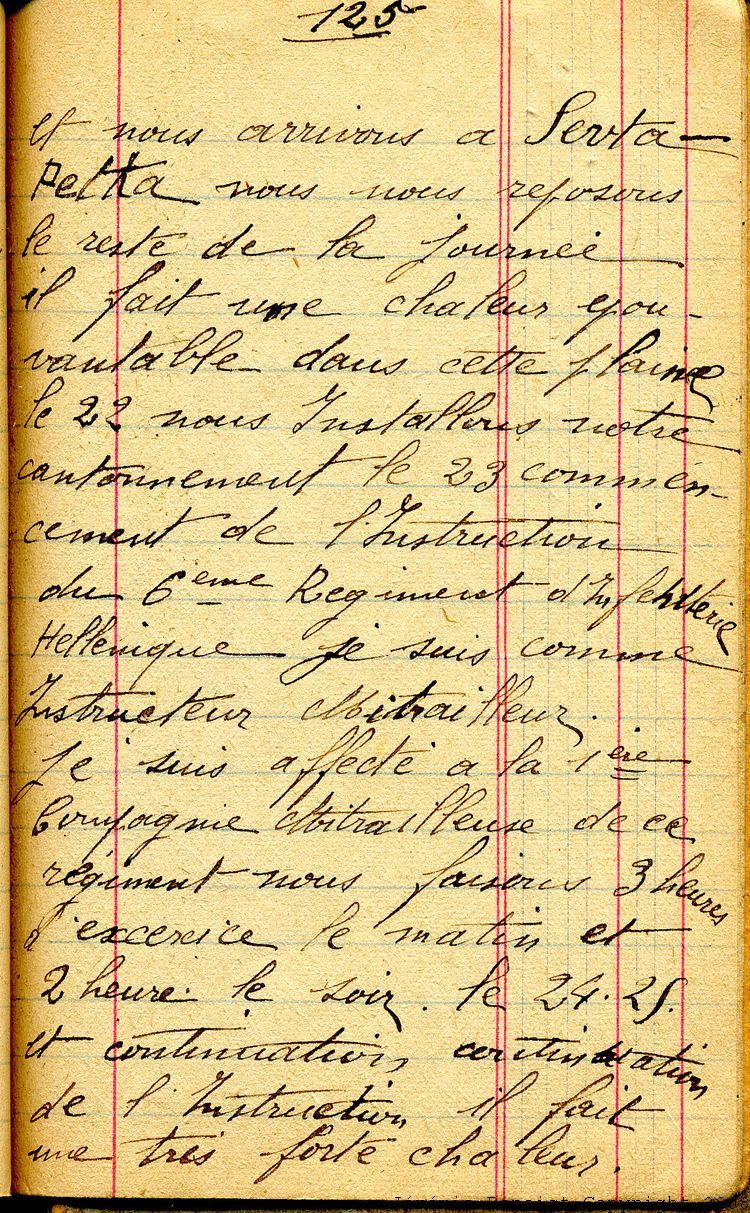 125
et nous arrivons a Serta-
Petka nous nous reposons
le reste de la journeé
il fait une chaleur épou-
vantable dans cette plaine
le 22 nous Installons notre
cantonnement le 23 commen-
cement de l'Instruction
du 6eme Regiment d'Infenterie
Hellenique je suis comme
Instructeur Mitrailleur.
je suis affecté a la 1ère
Compagnie Mitrailleuse de ce
régiment nous faisons 3 heures
d'excercice le matin et
2 heure le soir. le 24.25.
et continuation continuation
de l'Instruction il fait
une très forte chaleur.
Copyright